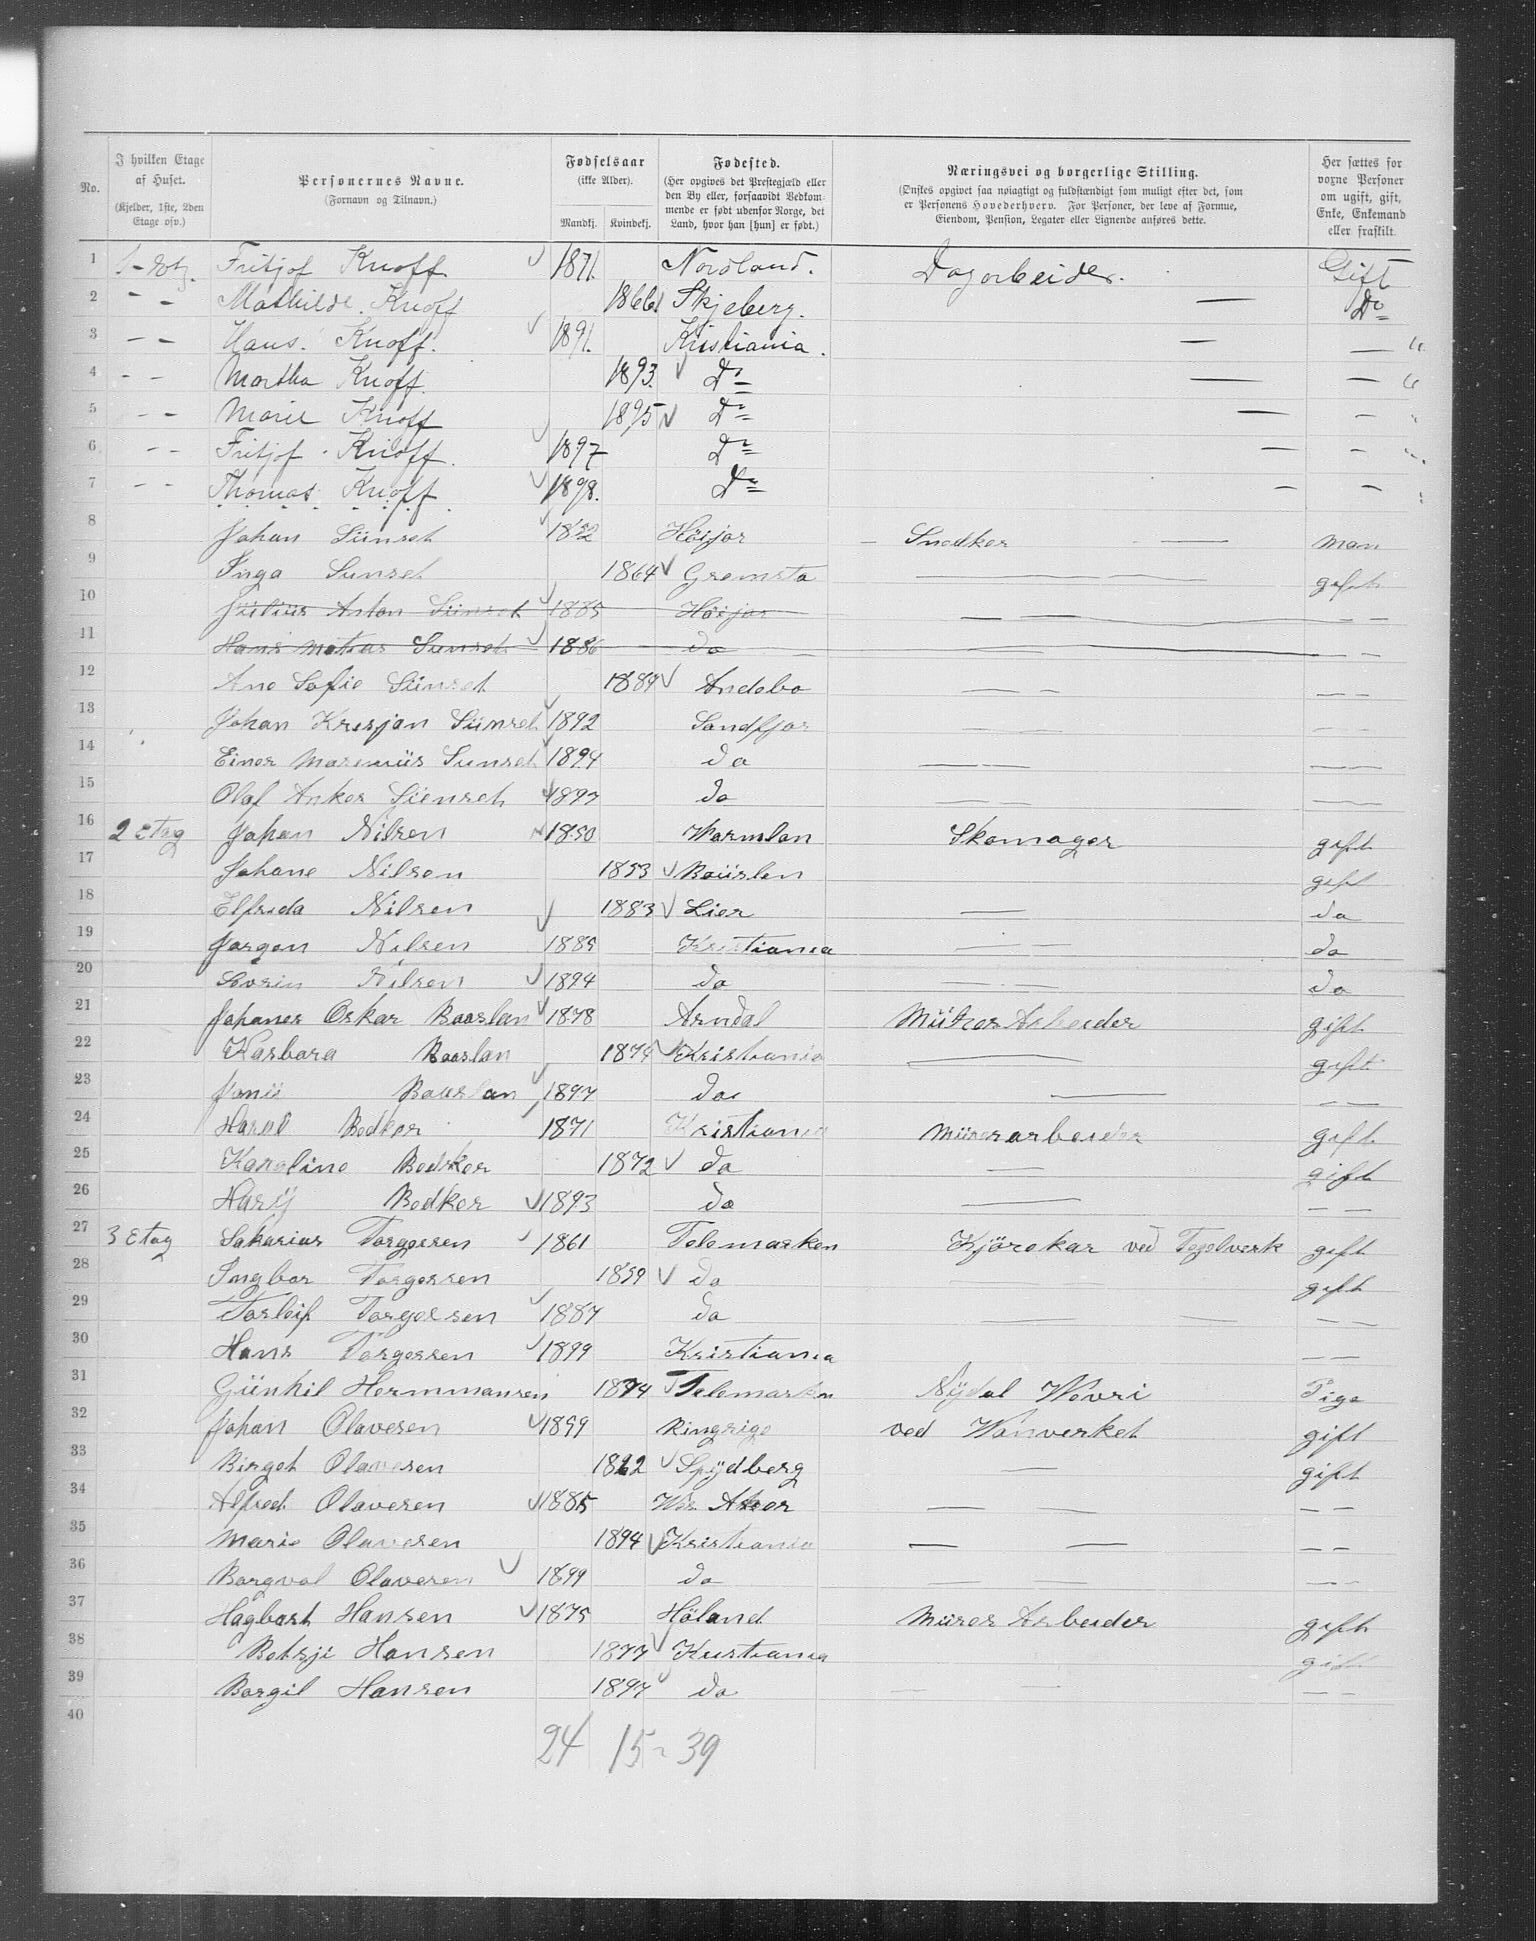 No. | I hvilken Etage af Huset. (Kjelder, 1ste, 2den Etage osv.) | Personernes Navne. (Fornavn og Tilnavn.) | Fødselsaar (ikke Alder). Mandkj. | Kvindekj. | Fødested. (Her opgives det Prestegjæld eller den By eller, forsaavidt Vedkommende er født udenfor Norge, det Land, hvor han [hun] er født.) | Næringsvei og borgerlige Stilling. (Ønskes opgivet saa nøiagtigt og fuldstændigt som muligt efter det, som er Personens Hovederhverv. For Personer, der leve af Formue, Eiendom, Pension, Legater eller Lignende anføres dette.) | Her sættes for voxne Personer om ugift, gift, Enke, Enkemand eller fraskilt.
1 Fritjof Knoff 1871. Nordland. Dagarbeider. Gift
2 - - Mathilde. Knoff 1866. Skjeberg. — Do
3 - - Hans. Knoff. 1891. Kristiania. — — "
4 - - Martha Knoff. 1893. Do — — "
5 - - Marie Knoff 1895 Do — — "
6 - - Fritjof Knoff. 1897 Do — - "
7 - - Thomas Knoff. 1898. Do — — "
8 Johan Sünset 1852 Höijor - Snedker — man
9 Inga Sunset 1864 Gremsta — gift
10 Julius Anton Sünset 1885 Höijor — —
11 Hans Matias Sunset 1886 do — —
12 Ane Sofie Sünset 1889 Andebo — —
13 Johan Kresjan Sünset 1892 Sandfjor — —
14 Einer Maremiüs Sunset 1894 do — —
15 Olaf Anker Sienset 1897 do — —
16 2 Etag Johan Nilsen 1850 Warmlan Skomager gift
17 Johane Nilsen 1853 Baüslen gift
18 Elfreda Nilsen 1883 Lier — do
19 Jørgen Nilsen 1885 Kristiania — — do
20 Sovrin Nilsen 1894 do — — do
21 Johanes Oskar Baaslan 1878 Arndal Mürer Arbeider gift
22 Karbara Baaslan 1874 Kristiania — gift
23 Baaslan 1897 do — — —
24 Haral Bodker 1871 Kristiania Mürerarbeider gift
25 Karoline Bodker 1872 do — gift
26 Harÿ Bodker 1893 do — — —
27 3 Etag Sakarias Torgersen 1861 Telemarken Kjörekar ved Tegelverk gift
28 Ingbor Torgersen 1859 do — gift
29 Torleif Torgersen 1887 do — — — —
30 Hans Torgersen 1899 Kristiania — —
31 Günhil Hermmansen 1874 Telemarken Nÿdal Wevri Pige
32 Johan Olavesen 1859 Ringrige ved Wanverket gift
33 Birget Olavesen 1862 Spÿdberg — gift
34 Alfred Olavesen 1885 Aker — — — —
35 Marie Olavesen 1894 Kristiania — — — —
36 Borgval Olavesen 1899 do — — — —
37 Hagbart Hansen 1875 Höland Mürer Arbeider gift
38 Betsji Hansen 1877 Kristiania gift
39 Borgil Hansen 1897 do — — — —
40
24 15 - 39